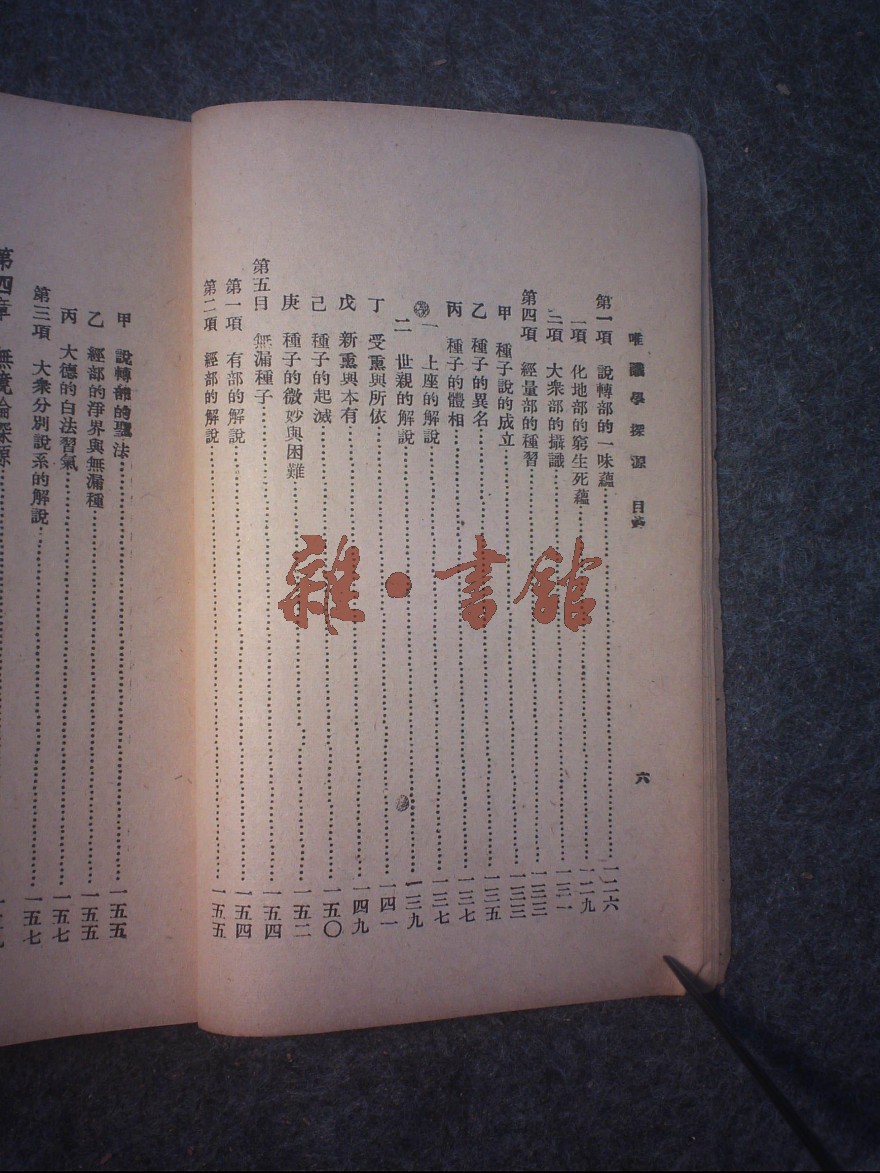 唯識學探源 目錄 六
第一項 說轉部的一味蘊 一二六
二項 化地部的窮生死蘊 一二九
三項 大衆部的攝識 一三一
第四項 經量部的種習 一三三
甲 種子說的成立 一三三
乙 種子的異名 一三五
丙 種子的體相 一三七
一 上座的解說 一三七
二 世親的解說 一三九
丁 受熏與所依 一四一
戊 新熏與本有 一四九
己 種子的起滅 一五〇
庚 種子的微妙與困難 一五二
第五目 無漏種子 一五四
第一項 有部的解說 一五四
第二項 經部的解說 一五五
甲 說轉部的聖法 一五五
乙 經部的淨界與無漏種 一五五
丙 大德的白法習氣 一五七
第三項 大衆分別說系的解說 一五七
第四章 無境論探源
雜·書館